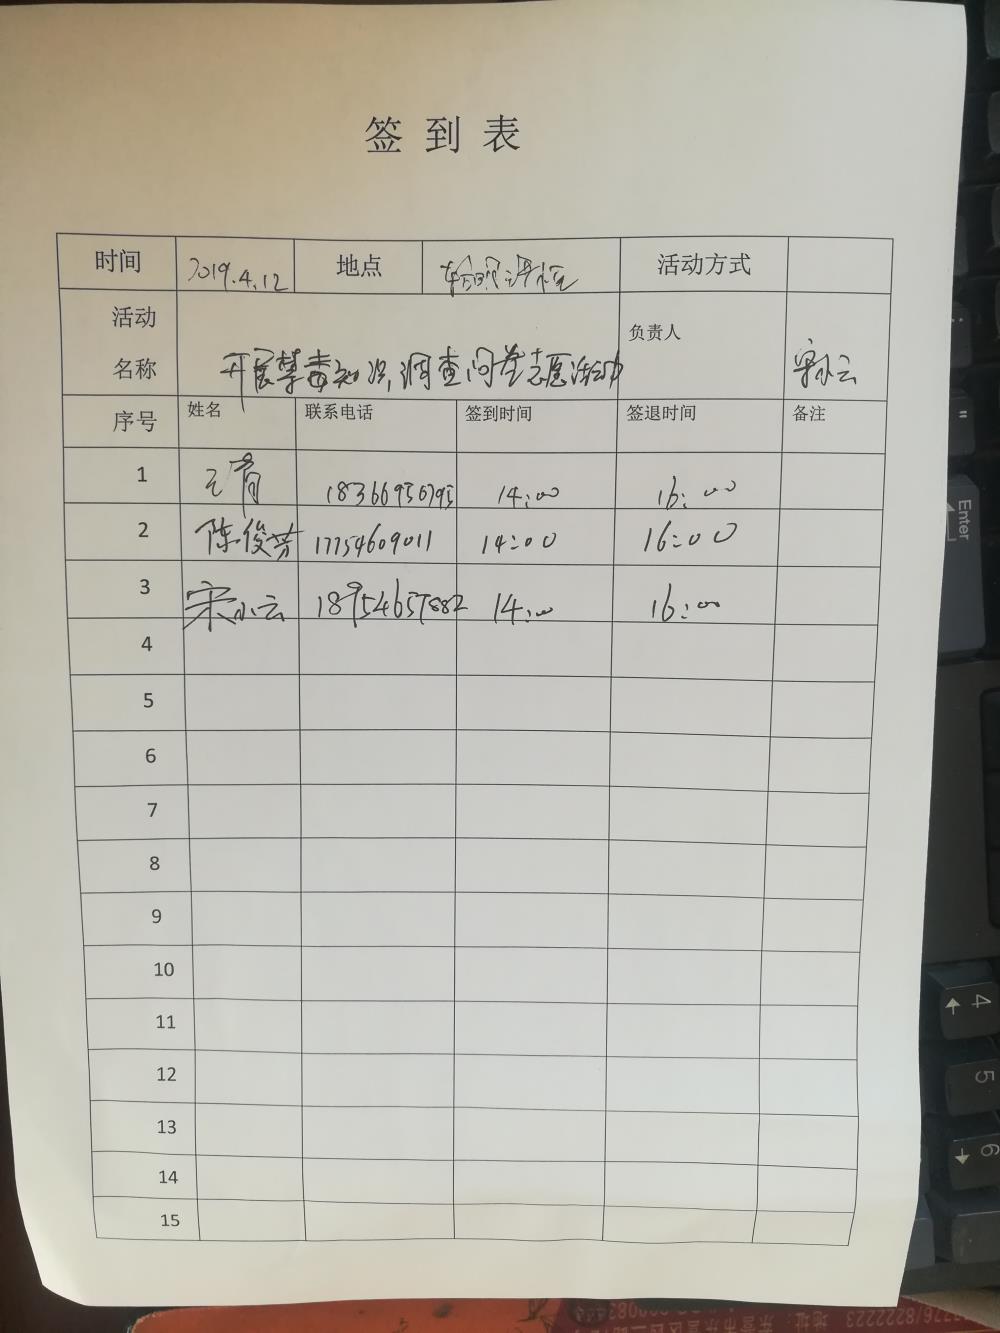 签到表
时间 2019.4.12 地点 活动方式
活动名称 开展禁毒知识调查问卷志愿活动 负责人 宋小云
序号 姓名 联系电话 签到时间 签退时间 备注
1 18366956795 14:00 16:00
2 陈俊芳 17754609011 14:00 16:00
3 宋小云 18954657882 14:00 16:00
4
5
6
7
8
9
10
11
12
13
14
15
"
Enter
4
5
6